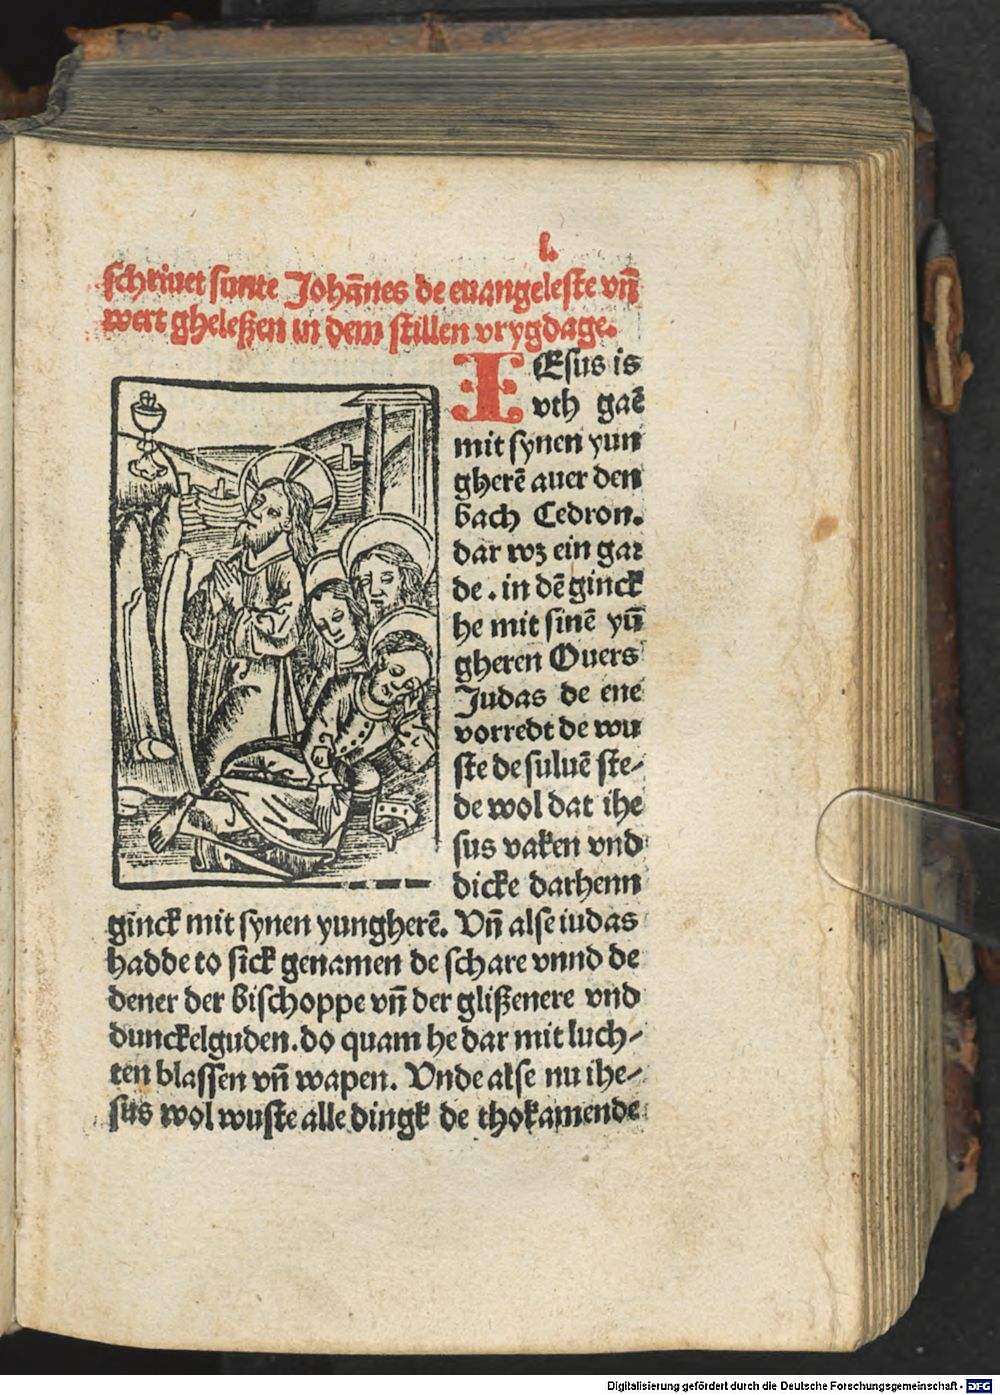 l.
schriuet sunte Johānes de euangeleste vñ
wert gheleßen in dem stillen vrygdage.
IEsus is
vth gaē
mit synen yun
gherē auer den
bach Cedron.
dar wz ein gar
de. in dē ginck
he mit sinē yū
gheren Ouers
Judas de ene
vorredt de wu
ste de suluē ste-
de wol dat ihe
sus vaken vnd
dicke darhenn
ginck mit synen yungherē. Vñ alse iudas
hadde to sick genamen de schare vnnd de
dener der bischoppe vñ der glißenere vnd
dunckelguden. do quam he dar mit luch-
ten blassen vñ wapen. Vnde alse nu ihe-
sus wol wuste alle dingk de thokamende
Digitalisierung gefördert durch die Deutsche Forschungsgemeinschaft - DFG